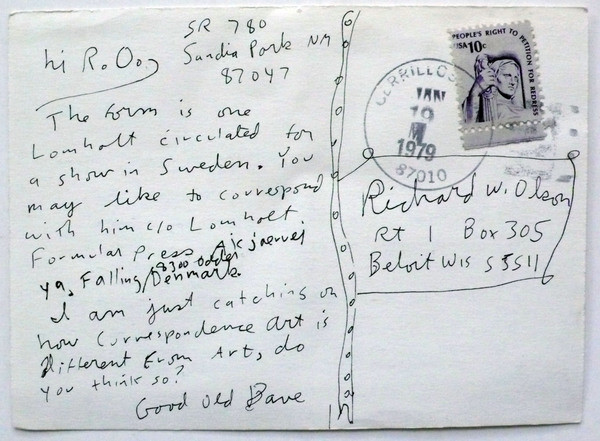 SR 780
Sandia Park NM
87047
hi R.O.
The form is one
Lomholt circulated for
a show in Sweden. You
may like to correspond
with him c/o Lomholt
Formular Press
ya, Falling, 8300 Odder
Denmark.
I am just catching on
how Correspondence Art is
different from Art, do
you think so?
Good Old Dave
PEOPLE'S RIGHT TO PETITION FOR REDRESS
USA 10c
CERRILLOS
JAN
19
1979
87010
Richard W. Olson
RT 1 Box 305
Beloit Wis 53511